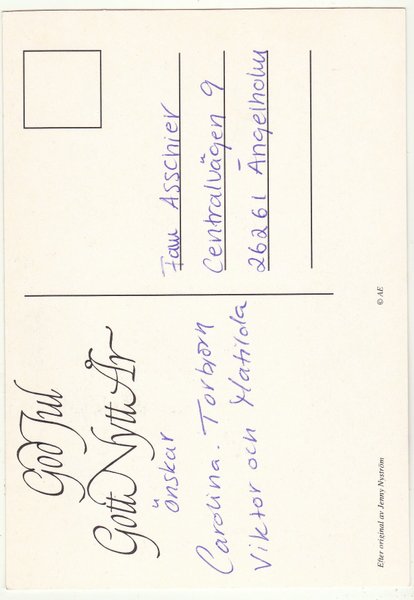 God Jul
Gott Nytt År
önskar
Carolina. Torbjörn
Viktor och Matilda
Fam Asschier
Centralvägen 9
26261 Ängelholm
Efter original av Jenny Nyström
© AE